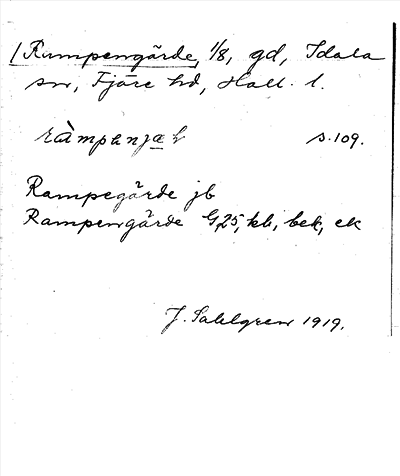 / Rampengärde, 1/8, gd, Idala
sn, Fjäre hd, Hall. l.
s. 109.
Rampegärde jb
Rampengärde G25, kb, bek, ek
J. Sahlgren 1919.